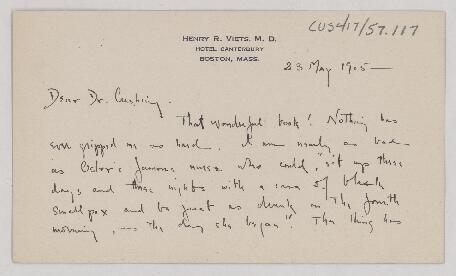 CUS417/57.117
HENRY R. VIETS, M. D.
HOTEL CANTERBURY
BOSTON, MASS.
23 May 1925—
Dear Dr. Cushing.
That wonderful book! Nothing has
ever gripped me so hard. I am nearly as bad
as Osler's famous nurse who could, "sit up three
days and three nights with a case of black
smallpox and be just as drunk on the fourth
morning, as the day she began". The thing has